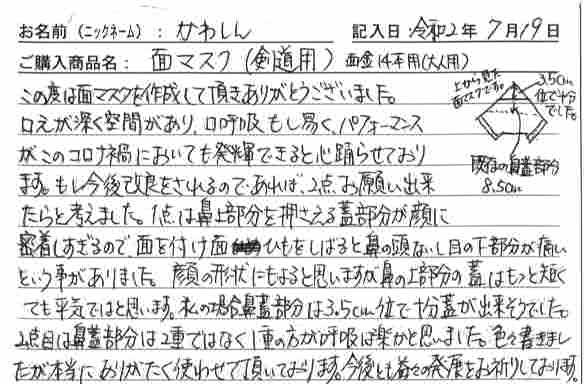 お名前(ニックネーム): かわしん 記入日:令和2年7月19日
ご購入商品名: 面マスク(剣道用) 面金14本用(大人用)
この度は面マスクを作成して頂きありがとうございました。
口元が深く空間があり、口呼吸もし易く、パフォーマンス
がこのコロナ禍においても発揮できると心踊らせており
ます。もし今後改良をされるのであれば、2点お願い出来
たらと考えました。1点は鼻上部分を押さえる蓋部分が顔に
密着しすぎるので、面を付け面ひもをしばると鼻の頭ないし目の下部分が痛い
という事がありました。顔の形状にもよると思いますが鼻の上部分の蓋はもっと短く
ても平気ではと思います。私の場合鼻蓋部分は3.5cm位で十分蓋が出来そうでした。
2点目は鼻蓋部分は2重ではなく1重の方が呼吸は楽かと思いました。色々書きまし
たが本当にありがたく使わせて頂いております。今後とも益々の発展をお祈りしております。
上から見た
面マスクです。
3.5cm
位で十分
でした。
既存の鼻蓋部分
8.50cm